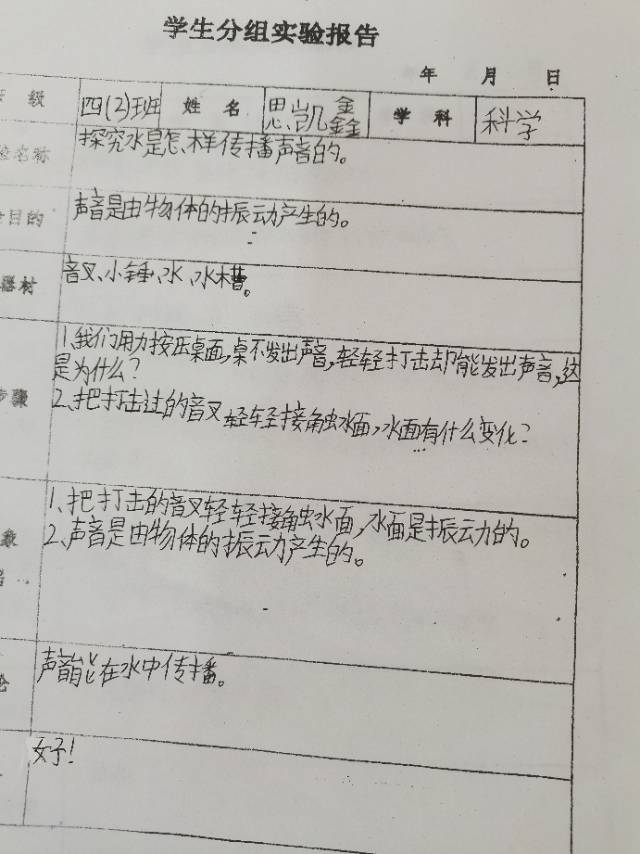 学生分组实验报告
年 月 日
级 四(2)班 姓名 思凯鑫 学科 科学
名称 探究水是怎样传播声音的。
目的 声音是由物体的振动产生的。
器材 音叉、小锤、水、水槽。
1、我们用力按压桌面,桌不发出声音,轻轻打击却能发出声音,这
是为什么?
骤 2、把打击过的音叉轻轻接触水面,水面有什么变化?
1、把打击的音叉轻轻接触水面,水面是振动的。
象 2、声音是由物体的振动产生的。
论 声音能在水中传播。
好!